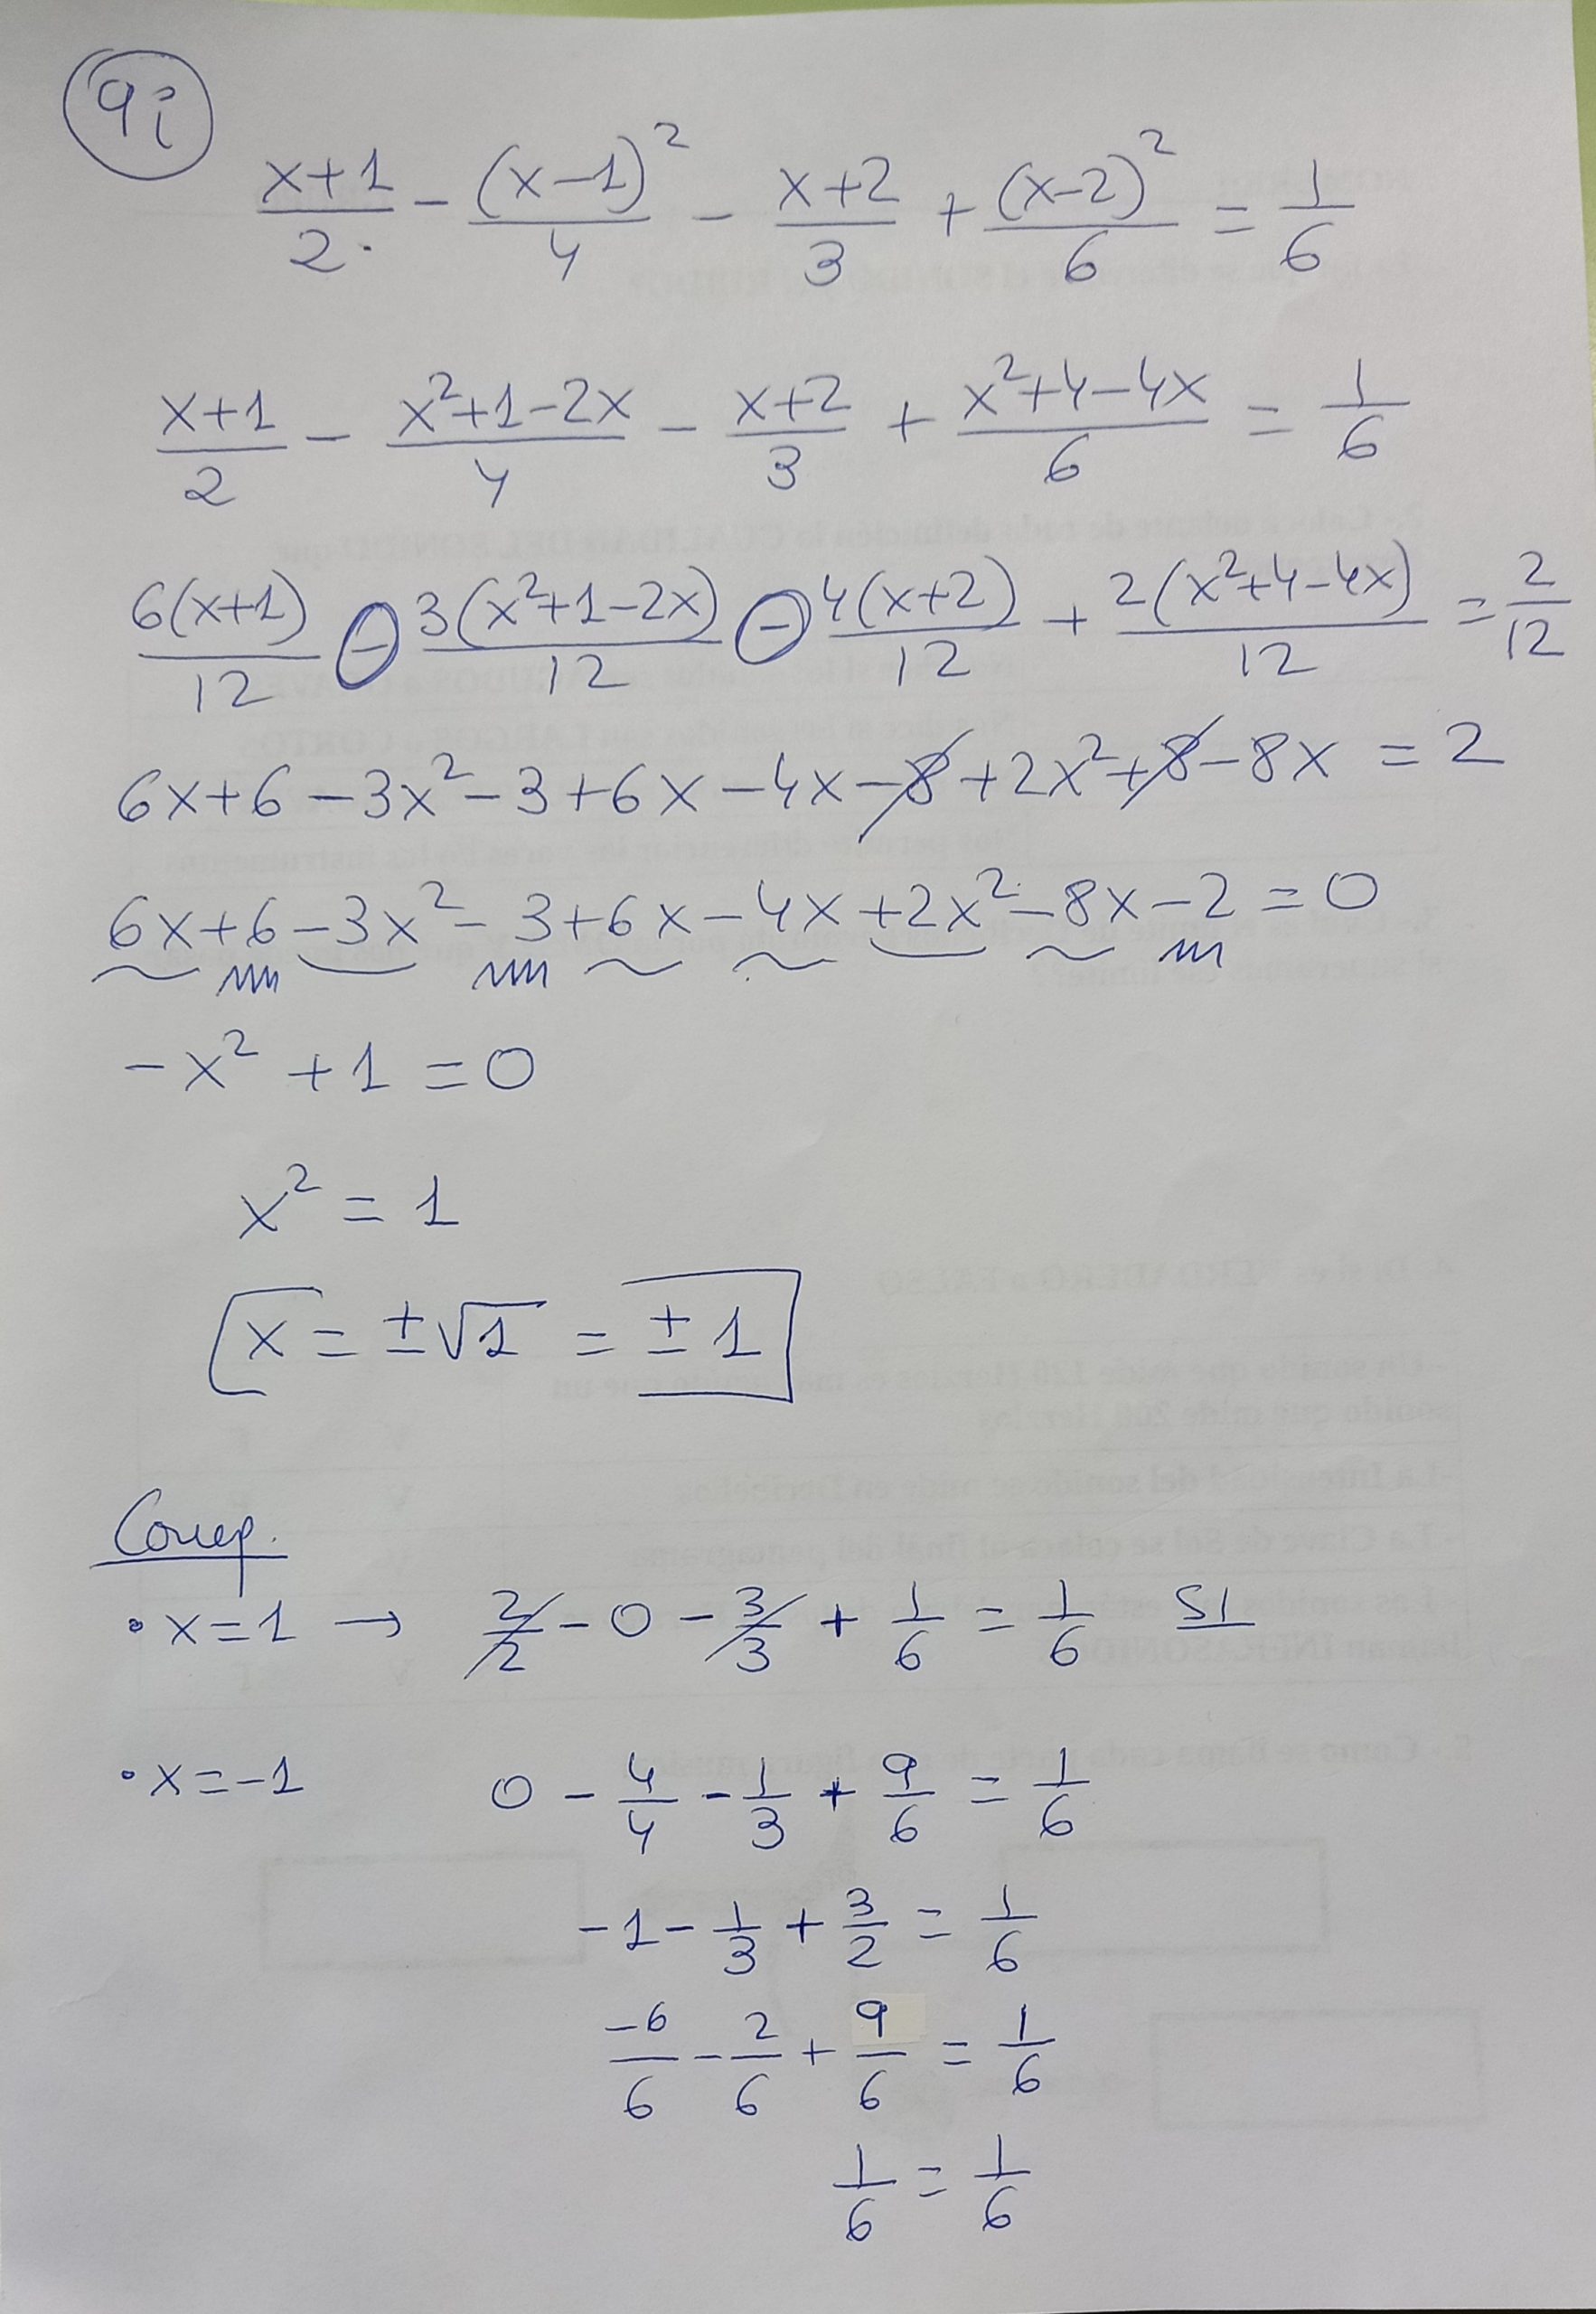 9i
x+1/2 - (x-1)²/4 - x+2/3 + (x-2)²/6 = 1/6
x+1/2 - x²+1-2x/4 - x+2/3 + x²+4-4x/6 = 1/6
6(x+1)/12 - 3(x²+1-2x)/12 - 4(x+2)/12 + 2(x²+4-4x)/12 = 2/12
6x+6-3x²-3+6x-4x-8+2x²+8-8x = 2
6x+6-3x²-3+6x-4x+2x²-8x-2 = 0
-x²+1 = 0
x² = 1
x = ±√1 = ±1
Comp.
• x=1 → 2/2 - 0 - 3/3 + 1/6 = 1/6 SI
• x=-1 0 - 4/4 - 1/3 + 9/6 = 1/6
-1 - 1/3 + 3/2 = 1/6
-6/6 - 2/6 + 9/6 = 1/6
1/6 = 1/6